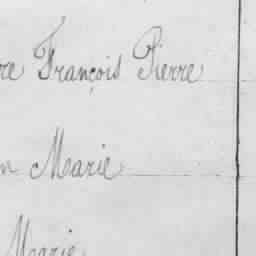 re François Pierre
n Marie
Marie